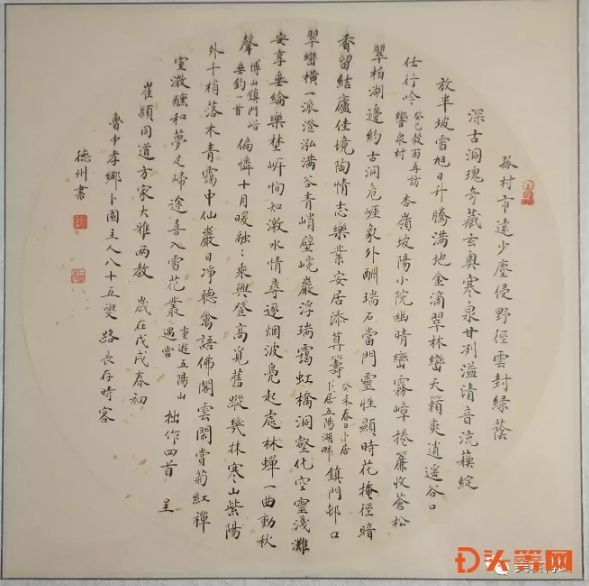 梦村市遠少塵侵野徑雲封綠蔭
深古洞瑰奇藏玄奧寒泉甘冽溢清音流蘋綻
放半坡雪旭日升騰滿地金滴翠林巒天籟爽逍遥谷口
任行吟癸巳穀雨再訪響泉村杏嶺坡陽小院幽晴巒霧嶂捲簾收蒼松
翠柏澗邊約古洞危崖象外酬瑞石當門靈性顯時花掩徑暗
香留結廬佳境陶情志樂業安居添算籌癸未春日卜居五陽湖畔鎮門邨口
翠巒橫一派澄泓满谷青峭壁巉巖浮瑞靄虹橋洞壑化空靈淺灘
安享垂綸樂埜岸恂知激水情尋逐烟波凫起處林蟬一曲動秋
聲博山鎮門峪垂釣一首偏憐十月暖融:乘興登高覓舊蹤幾抹寒山紫陽
外千梢落木青靄中仙巖日净聴禽語佛閣雲閒賞菊紅禪
室潋醺和夢足歸途喜入雪花叢重遊五陽山遇雪拙作四首呈
崔穎同道方家大雅两教歲在戊戌春初
魯中孝鄉卜圃主人八十五叟路長存時客
德州書
头条网